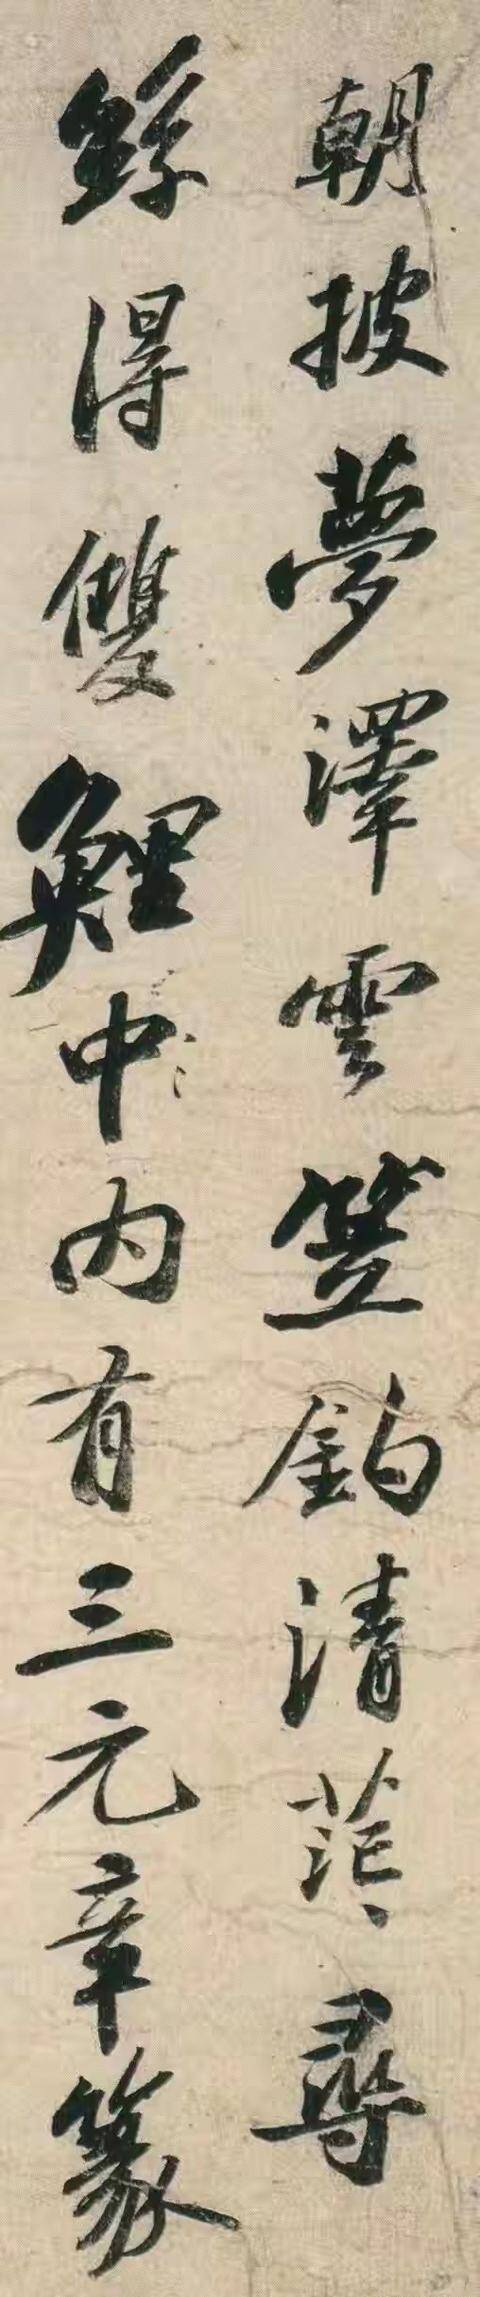 朝披夢澤雲笠釣清茫〻尋
絲得雙鯉中内有三元章篆